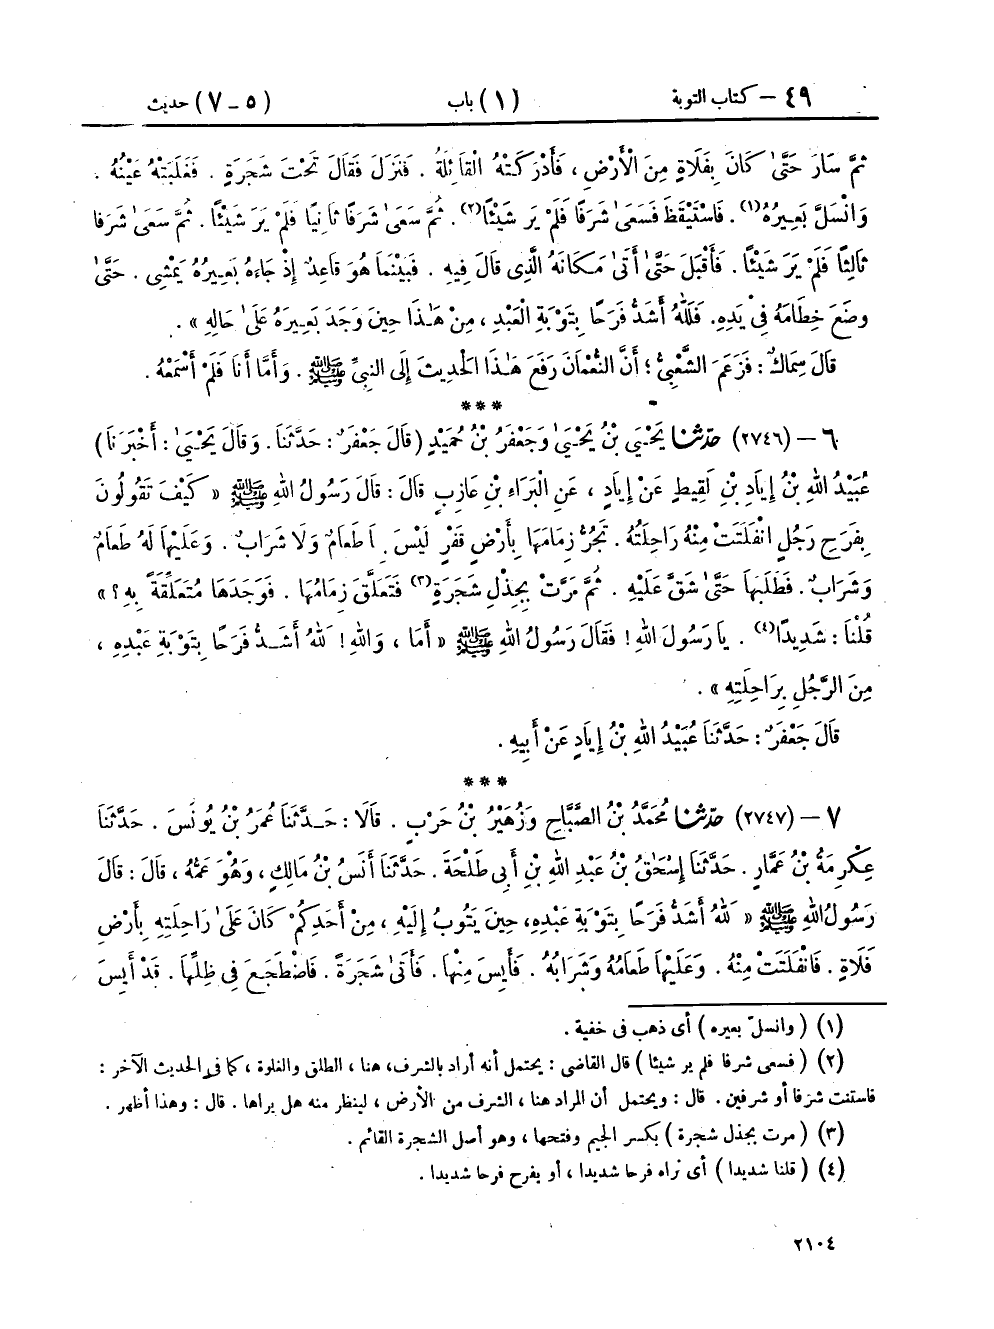 ٤٩ – كتاب التوبة (١) باب (٥ – ٧) حديث
ثُمَّ سَارَ حَتَّىٰ كَانَ بِفَلَاةٍ مِنَ الْأَرْضِ ، فَأَدْرَكَتْهُ الْقَائِلَةُ . فَنَزَلَ فَقَالَ تَحْتَ شَجَرَةٍ . فَغَلَبَتْهُ عَيْنُهُ .
وَانْسَلَّ بَعِيرُهُ(١) . فَاسْتَيْقَظَ فَسَعَىٰ شَرَفًا فَلَمْ يَرَ شَيْئًا(٢) . ثُمَّ سَعَىٰ شَرَفًا ثَانِيًا فَلَمْ يَرَ شَيْئًا . ثُمَّ سَعَىٰ شَرَفًا
ثَالِثًا فَلَمْ يَرَ شَيْئًا . فَأَقْبَلَ حَتَّىٰ أَتَىٰ مَكَانَهُ الَّذِى قَالَ فِيهِ . فَبَيْنَمَا هُوَ قَاعِدٌ إِذْ جَاءَهُ بَعِيرُهُ يَمْشِى . حَتَّىٰ
وَضَعَ خِطَامَهُ فِى يَدِهِ. فَلَلّٰهُ أَشَدُّ فَرَحًا بِتَوْبَةِ الْعَبْدِ ، مِنْ هَـٰذَا حِينَ وَجَدَ بَعِيرَهُ عَلَىٰ حَالِهِ » .
قَالَ سِمَاكٌ : فَزَعَمَ الشَّعْبِىُّ ؛ أَنَّ النُّعْمَانَ رَفَعَ هَـٰذَا الْحَدِيثَ إِلَى النَّبِىِّ ﷺ . وَأَمَّا أَنَا فَلَمْ أَسْمَعْهُ .
***
٦ – (٢٧٤٦) حَدَّثَنَا يَحْيَىٰ بْنُ يَحْيَىٰ وَجَعْفَرُ بْنُ حُمَيْدٍ (قَالَ جَعْفَرٌ : حَدَّثَنَا . وَقَالَ يَحْيَىٰ : أَخْبَرَنَا)
عُبَيْدُ اللهِ بْنُ إِيَادِ بْنِ لَقِيطٍ عَنْ إِيَادٍ ، عَنِ الْبَرَاءِ بْنِ عَازِبٍ قَالَ : قَالَ رَسُولُ اللهِ ﷺ « كَيْفَ تَقُولُونَ
بِفَرَحِ رَجُلٍ انْفَلَتَتْ مِنْهُ رَاحِلَتُهُ . تَجُرُّ زِمَامَهَا بِأَرْضٍ قَفْرٍ لَيْسَ طَعَامٌ وَلَا شَرَابٌ . وَعَلَيْهَا لَهُ طَعَامٌ
وَشَرَابٌ . فَطَلَبَهَا حَتَّىٰ شَقَّ عَلَيْهِ . ثُمَّ مَرَّتْ بِجِذْلِ شَجَرَةٍ(٣) فَتَعَلَّقَ زِمَامُهَا . فَوَجَدَهَا مُتَعَلِّقَةً بِهِ ؟ »
قُلْنَا : شَدِيدًا(٤) . يَا رَسُولَ اللهِ ! فَقَالَ رَسُولُ اللهِ ﷺ « أَمَا ، وَاللهِ ! لَلّٰهُ أَشَدُّ فَرَحًا بِتَوْبَةِ عَبْدِهِ ،
مِنَ الرَّجُلِ بِرَاحِلَتِهِ » .
قَالَ جَعْفَرٌ : حَدَّثَنَا عُبَيْدُ اللهِ بْنُ إِيَادٍ عَنْ أَبِيهِ .
***
٧ – (٢٧٤٧) حَدَّثَنَا مُحَمَّدُ بْنُ الصَّبَّاحِ وَزُهَيْرُ بْنُ حَرْبٍ . قَالَا : حَدَّثَنَا عُمَرُ بْنُ يُونُسَ . حَدَّثَنَا
عِكْرِمَةُ بْنُ عَمَّارٍ . حَدَّثَنَا إِسْحَٰقُ بْنُ عَبْدِ اللهِ بْنِ أَبِى طَلْحَةَ . حَدَّثَنَا أَنَسُ بْنُ مَالِكٍ ، وَهُوَ عَمُّهُ ، قَالَ : قَالَ
رَسُولُ اللهِ ﷺ « لَلّٰهُ أَشَدُّ فَرَحًا بِتَوْبَةِ عَبْدِهِ، حِينَ يَتُوبُ إِلَيْهِ ، مِنْ أَحَدِكُمْ كَانَ عَلَىٰ رَاحِلَتِهِ بِأَرْضِ
فَلَاةٍ . فَانْفَلَتَتْ مِنْهُ . وَعَلَيْهَا طَعَامُهُ وَشَرَابُهُ . فَأَيِسَ مِنْهَا . فَأَتَىٰ شَجَرَةً . فَاضْطَجَعَ فِى ظِلِّهَا . قَدْ أَيِسَ
(١) ( وانسلّ بعيره ) أى ذهب فى خفية .
(٢) ( فسعى شرفا فلم ير شيئا ) قال القاضى : يحتمل أنه أراد بالشرف، هنا ، الطلق والغلوة ، كما فى الحديث الآخر :
فاستنت شرفا أو شرفين . قال : ويحتمل أن المراد هنا ، الشرف من الأرض ، لينظر منه هل يراها . قال : وهذا أظهر .
(٣) ( مرت بجذل شجرة ) بكسر الجيم وفتحها ، وهو أصل الشجرة القائم .
(٤) ( قلنا شديدا ) أى نراه فرحا شديدا ، أو يفرح فرحا شديدا .
٢١٠٤